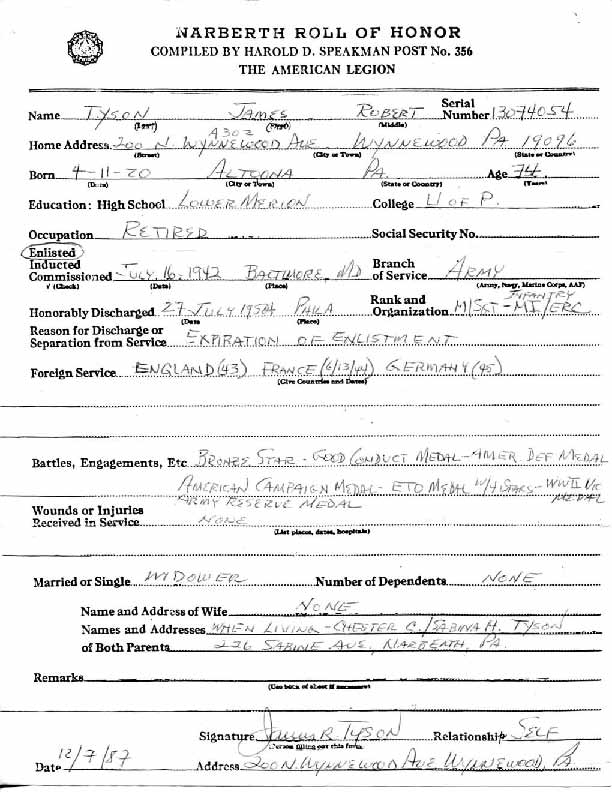 NARBERTH ROLL OF HONOR
COMPILED BY HAROLD D. SPEAKMAN POST No. 356
THE AMERICAN LEGION
Name TYSON JAMES ROBERT Serial Number 13074054
(Last) (First) (Middle)
A302
Home Address 200 N. WYNNEWOOD AVE WYNNEWOOD PA 19096
(Street) (City or Town) (State or Country)
Born 4-11-20 ALTOONA PA. Age 74
(Date) (City or Town) (State or Country) (Years)
Education: High School LOWER MERION College U OF P.
Occupation RETIRED Social Security No.
Enlisted
Inducted
Commissioned JULY 16, 1942 BALTIMORE, MD Branch of Service ARMY
√ (Check) (Date) (Place) (Army, Navy, Marine Corps, AAF)
INFANTRY
Honorably Discharged 27 JULY 1954 PHILA Rank and Organization M/SGT - MI/ERC
(Date) (Place)
Reason for Discharge or
Separation from Service EXPIRATION OF ENLISTMENT
Foreign Service ENGLAND (43) FRANCE (6/13/44) GERMANY (45)
(Give Countries and Dates)
Battles, Engagements, Etc BRONZE STAR - GOOD CONDUCT MEDAL - AMER DEF MEDAL
AMERICAN CAMPAIGN MEDAL - ETO MEDAL W/4 STARS - WWII VIC MEDAL
ARMY RESERVE MEDAL
Wounds or Injuries
Received in Service NONE
(List places, dates, hospitals)
Married or Single WIDOWER Number of Dependents NONE
Name and Address of Wife NONE
Names and Addresses WHEN LIVING - CHESTER C./SABINA H. TYSON
of Both Parents 236 SABINE AVE, NARBERTH, PA.
Remarks
(Use back of sheet if necessary)
Signature James R. TYSON Relationship SELF
(Person filling out this form)
Date 12/7/87 Address 200 N. WYNNEWOOD AVE WYNNEWOOD, PA